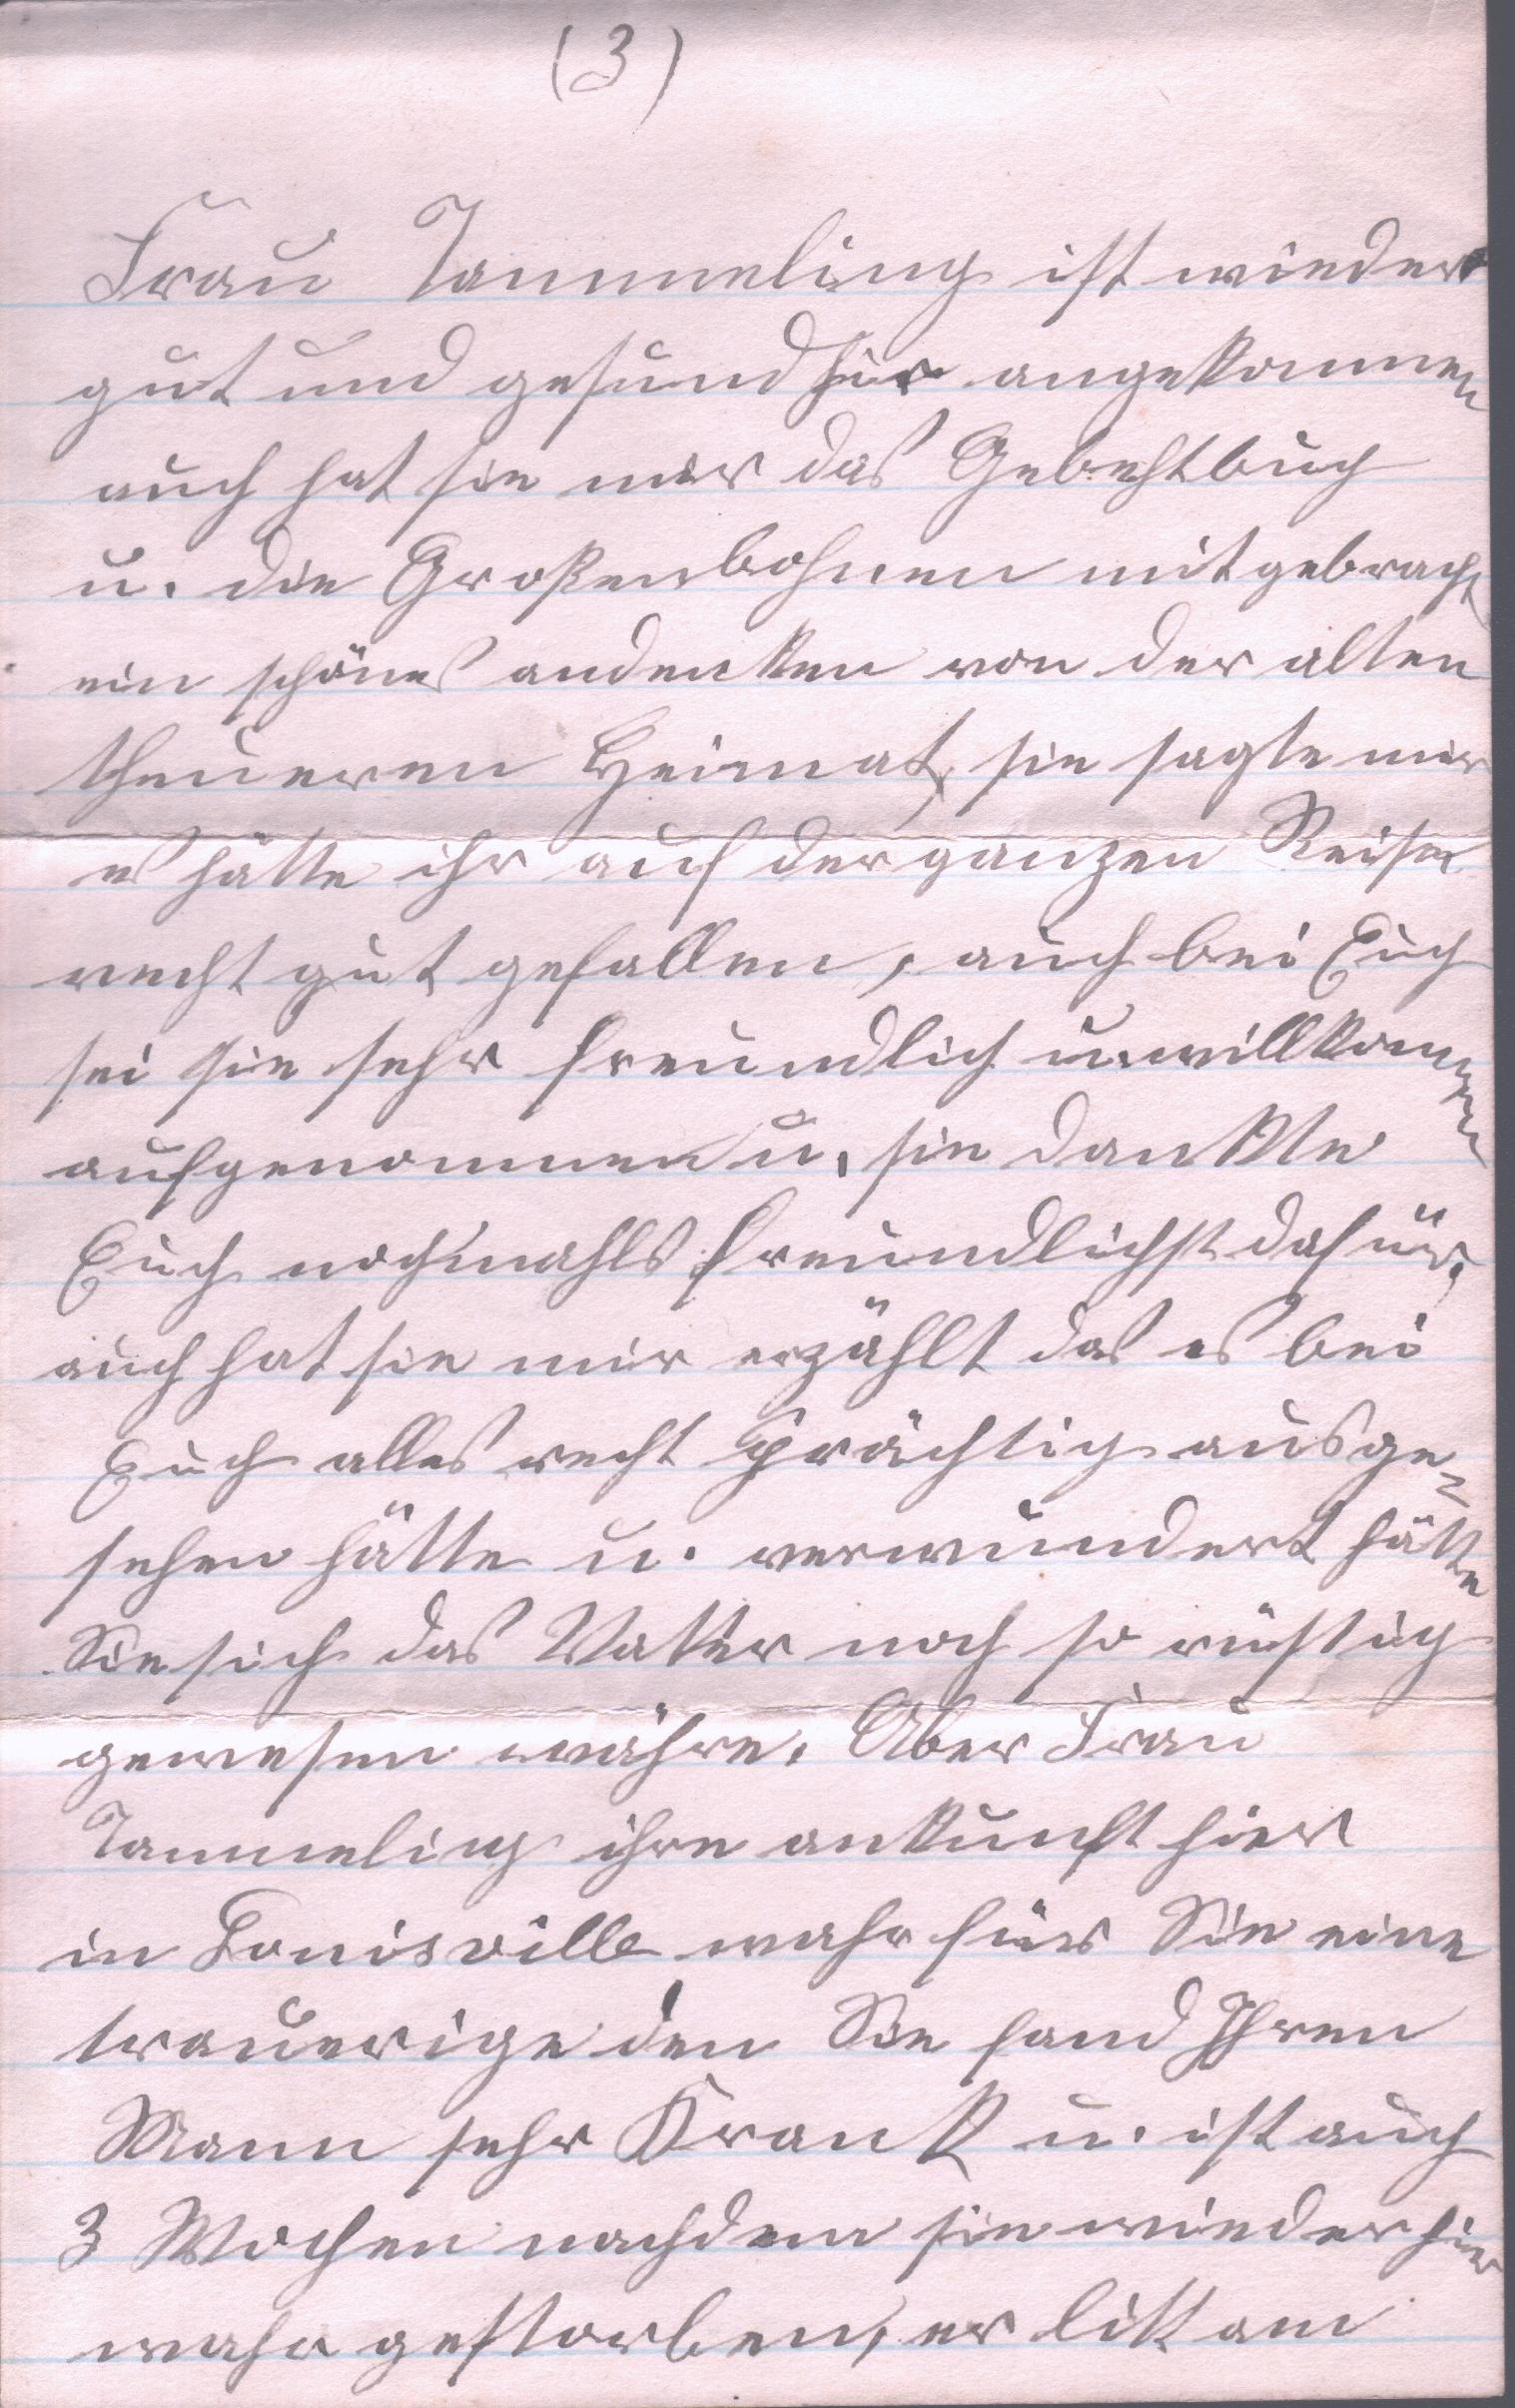 (3)
Frau Tammeling ist wieder
gut und gesund hier angekommen
auch hat sie mir das Gebehtbuch
u. die Großenbohnen mitgebracht
ein schönes andenken von der alten
theueren Heimat, sie sagte mir
es hätte ihr auf der ganzen Reise
recht gut gefallen, auch bei Euch
sei sie sehr freundlich u. willkommen
aufgenommen u. sie dankte
Euch nochmahls freundlichst dafür,
auch hat sie mir erzählt das es bei
Euch alles recht prächtig ausge-
sehen hätte u. verwundert hätte
Sie sich das Vatter noch so rüstig
gewesen währe. Aber Frau
Tammeling ihre ankunft hier
in Louisville wahr für Sie eine
trauerige den Sie fand Ihren
Mann sehr Krank u. ist auch
3 Wochen nachdem sie wieder hier
wahr gestorben, er litt am